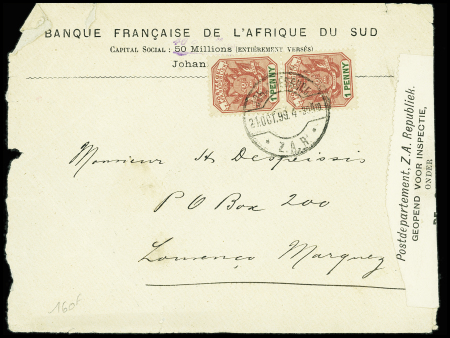 BANQUE FRANÇAISE DE L'AFRIQUE DU SUD
CAPITAL SOCIAL : 50 Millions (ENTIÈREMENT VERSÉS)
Johan
1 PENNY
1 PENNY
21 OCT. 99
Z.A.R.
Monsieur H Despeissis
P O Box 200
Lourenço Marquez
Postdepartement. Z. A. Republiek.
GEOPEND VOOR INSPECTIE,
ONDER
160f